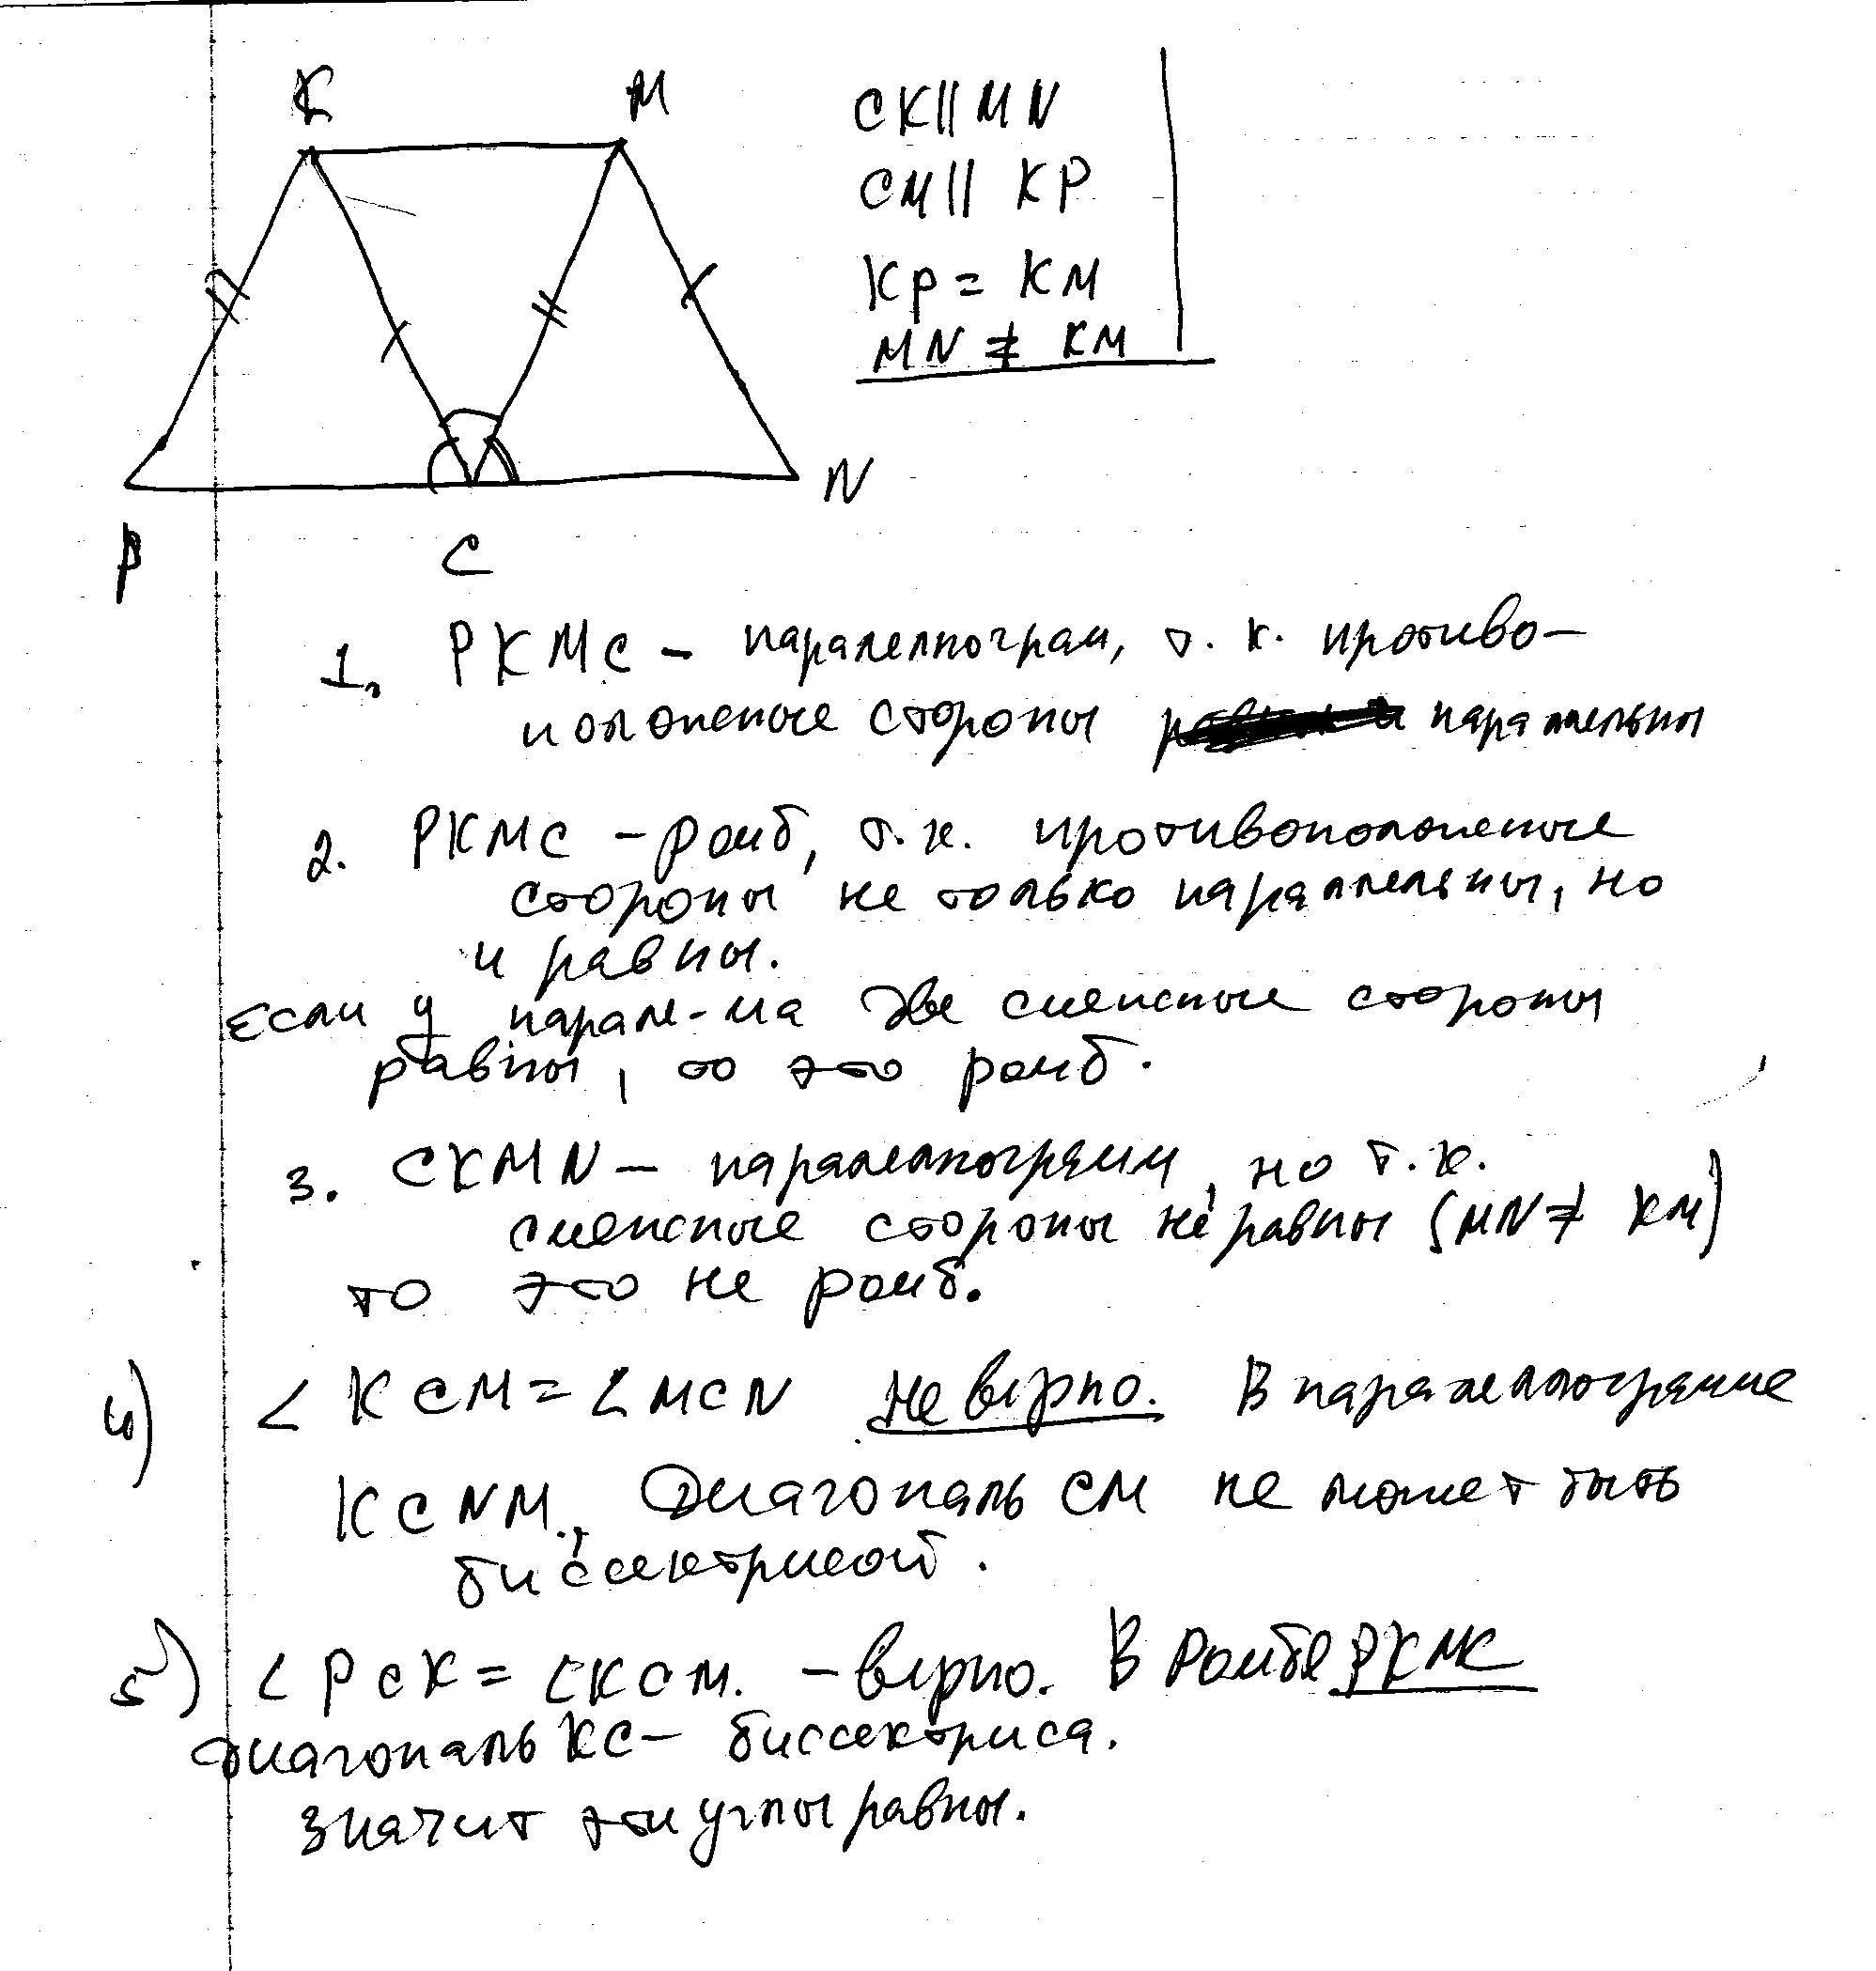 K
M
CK || MN
CM || KP
KP = KM
MN ≠ KM
N
P
C
1. PKMC – паралелпограм, т. к. противо-
положеные стороны параллельны
2. PKMC – ромб, т.к. противоположеные
стороны не только параллельны, но
и равны.
Если у парал-ма две смежные стороны
равны, то это ромб.
3. CKMN – паралелпограмм, но т.к.
смежные стороны не равны (MN ≠ KM)
то это не ромб.
4) ∠ KCM = ∠ MCN не верно. В параллелограмме
KCNM., Диагональ CM не может быть
биссектрисой.
5) ∠ PCK = ∠ KCM. – верно. В Ромбе PKMK
диагональ KC – биссектриса.
значит эти углы равны.